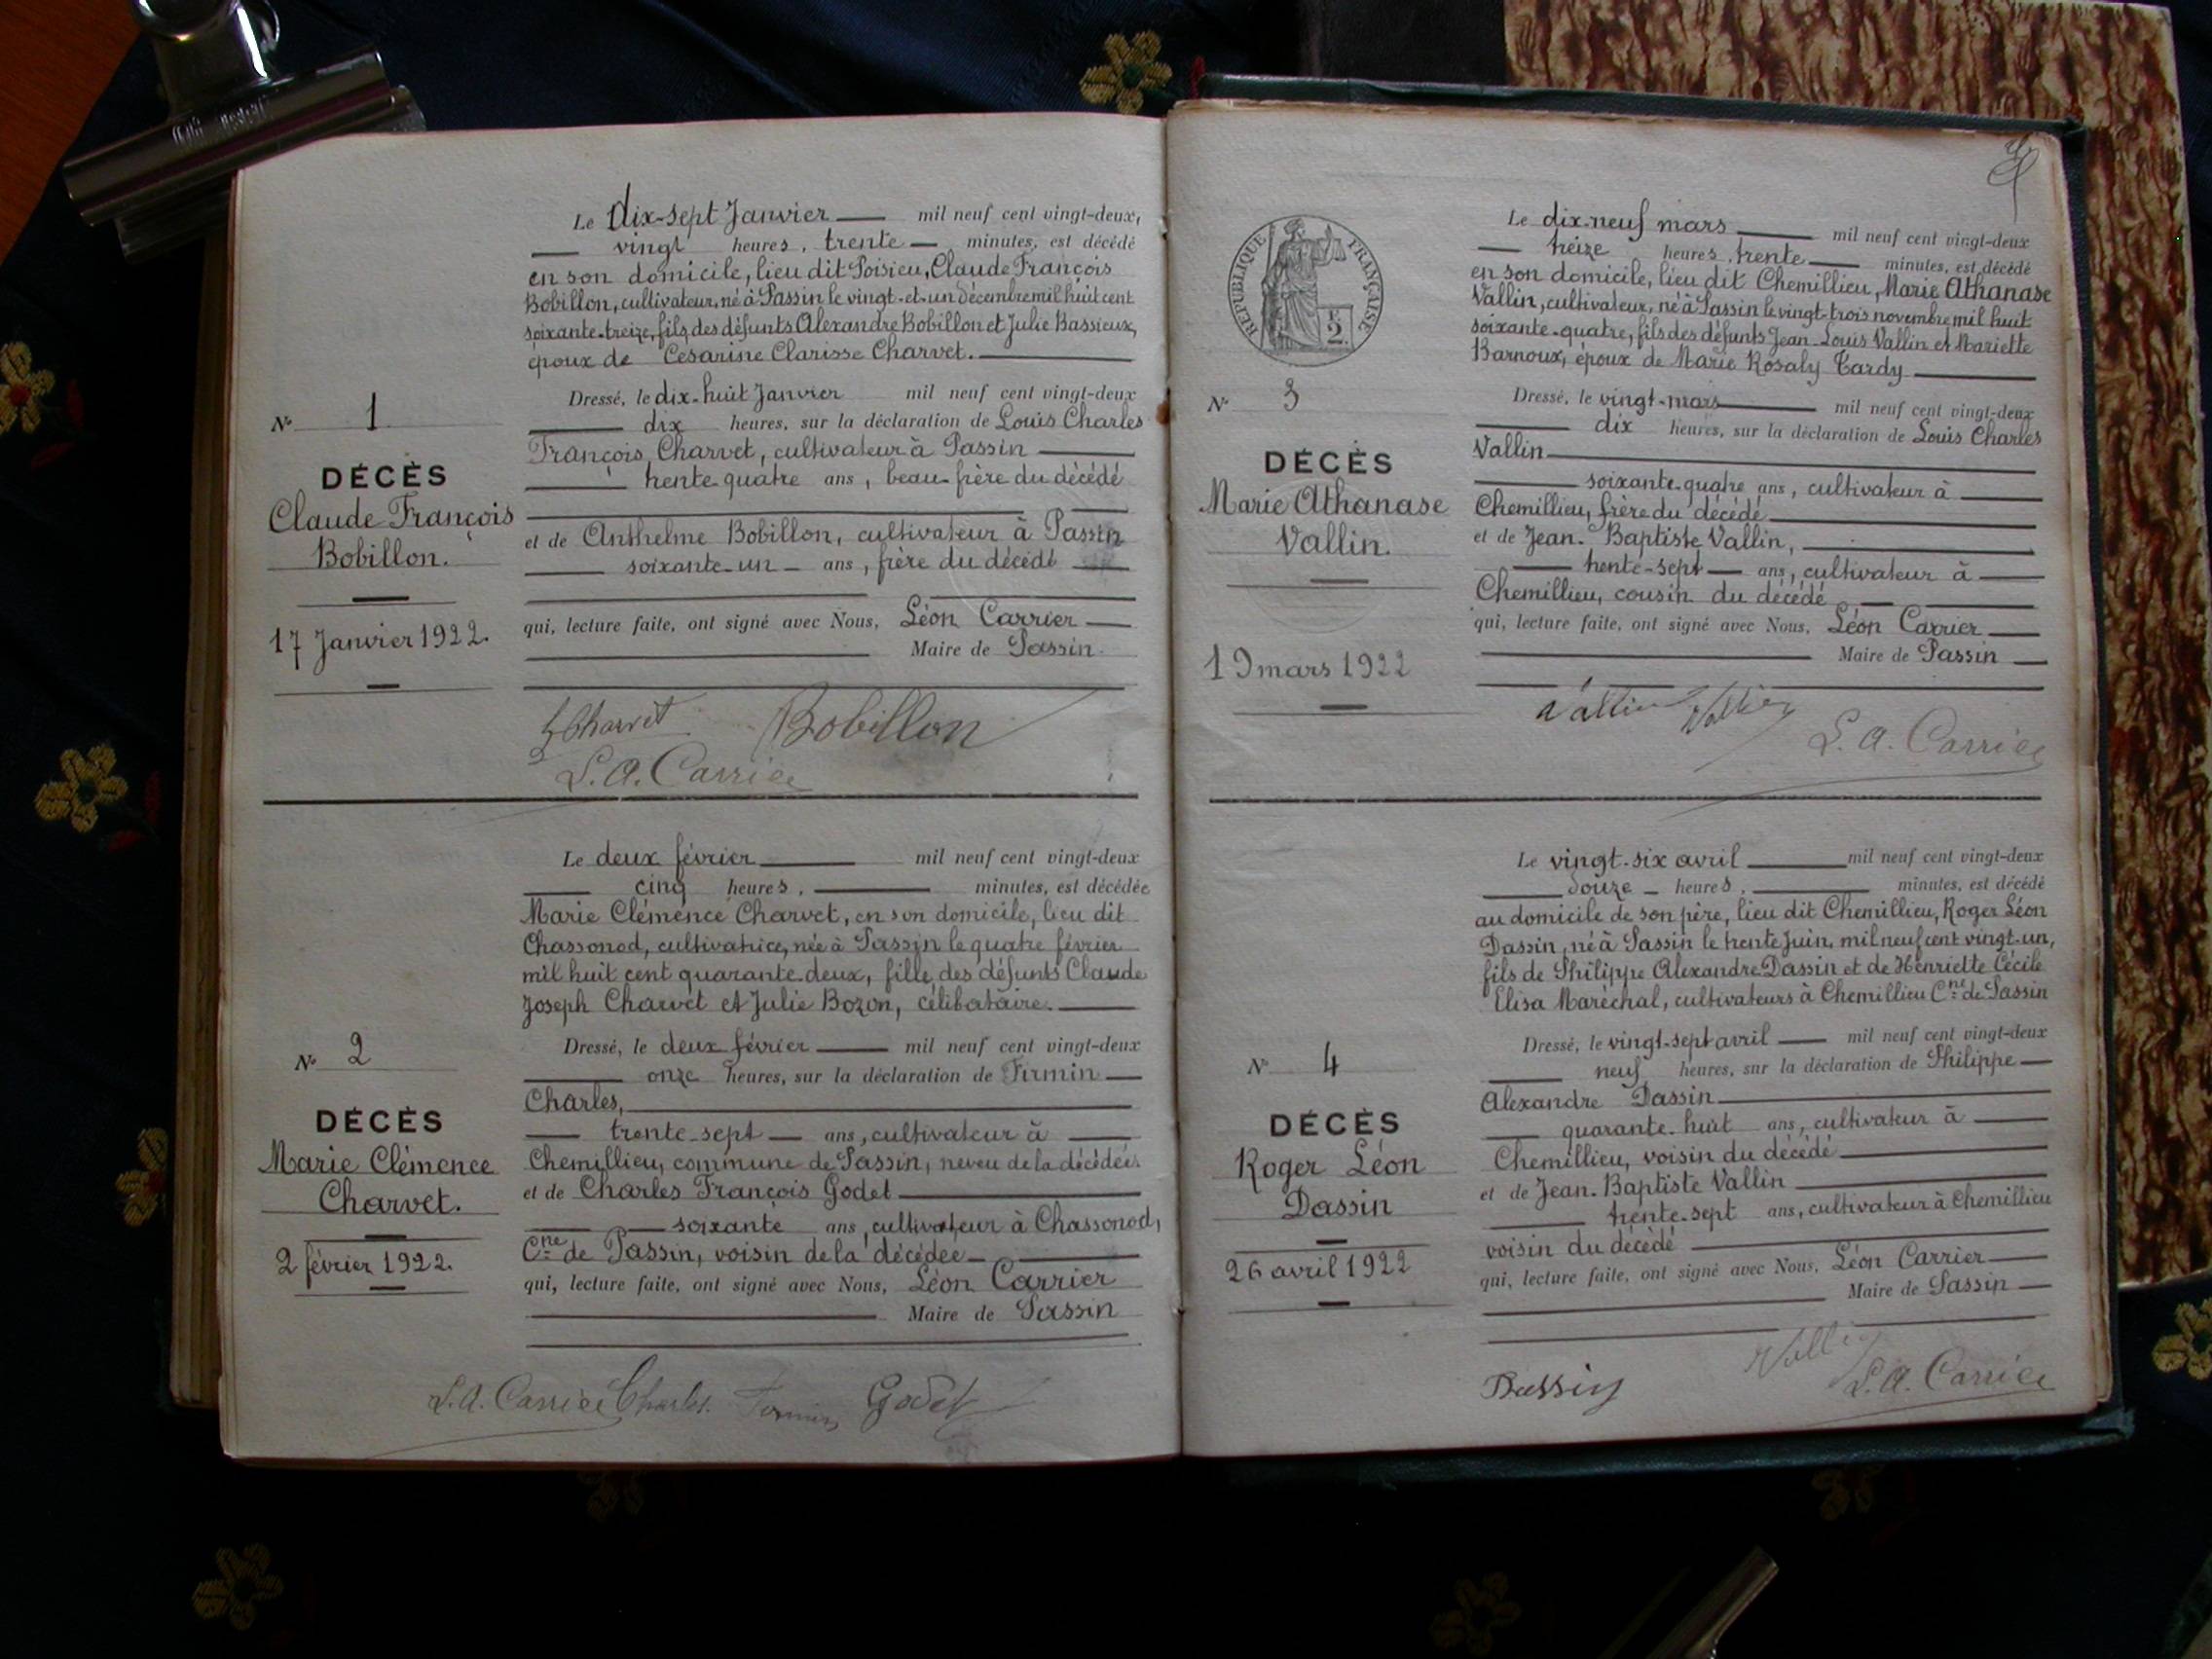 Le dix-sept Janvier mil neuf cent vingt-deux,
vingt heures, trente minutes, est décédé
en son domicile, lieu dit Poisieu, Claude François
Bobillon, cultivateur, né à Passin le vingt-et-un décembre mil huit cent
soixante-treize, fils des défunts Alexandre Bobillon et Julie Bassieux,
époux de Césarine Clarisse Charvet.
Dressé, le dix-huit Janvier mil neuf cent vingt-deux
dix heures, sur la déclaration de Louis Charles
François Charvet, cultivateur à Passin
trente quatre ans, beau-frère du décédé
et de Anthelme Bobillon, cultivateur à Passin
soixante-un ans, frère du décédé
qui, lecture faite, ont signé avec Nous, Léon Carrier
Maire de Passin.
N° 1
DÉCÈS
Claude François
Bobillon.
17 Janvier 1922.
Charvet Bobillon
L. A. Carrier
Le deux février mil neuf cent vingt-deux
cinq heures, minutes, est décédée
Marie Clémence Charvet, en son domicile, lieu dit
Chassonod, cultivatrice, née à Passin le quatre février
mil huit cent quarante-deux, fille des défunts Claude
Joseph Charvet et Julie Bozon, célibataire.
Dressé, le deux février mil neuf cent vingt-deux
onze heures, sur la déclaration de Firmin
Charles,
trente-sept ans, cultivateur à
Chemillieu, commune de Passin, neveu de la décédée
et de Charles François Godet
soixante ans, cultivateur à Chassonod,
Cne de Passin, voisin de la décédée
qui, lecture faite, ont signé avec Nous, Léon Carrier
Maire de Passin
N° 2
DÉCÈS
Marie Clémence
Charvet.
2 février 1922.
L. A. Carrier Charles Firmin Godet
RÉPUBLIQUE FRANÇAISE
2
Le dix-neuf mars mil neuf cent vingt-deux
treize heures, trente minutes, est décédé
en son domicile, lieu dit Chemillieu, Marie Athanase
Vallin, cultivateur, né à Passin le vingt-trois novembre mil huit
soixante-quatre, fils des défunts Jean-Louis Vallin et Mariette
Barnoux, époux de Marie Rosaly Tardy
Dressé, le vingt-mars mil neuf cent vingt-deux
dix heures, sur la déclaration de Louis Charles
Vallin
soixante-quatre ans, cultivateur à
Chemillieu, frère du décédé
et de Jean-Baptiste Vallin,
trente-sept ans, cultivateur à
Chemillieu, cousin du décédé
qui, lecture faite, ont signé avec Nous, Léon Carrier
Maire de Passin
N° 3
DÉCÈS
Marie Athanase
Vallin.
19 mars 1922
Vallin Vallin
L. A. Carrier
Le vingt-six avril mil neuf cent vingt-deux
douze heures, minutes, est décédé
au domicile de son père, lieu dit Chemillieu, Roger Léon
Dassin, né à Passin le trente Juin, mil neuf cent vingt-un,
fils de Philippe Alexandre Dassin et de Henriette Cécile
Elisa Maréchal, cultivateurs à Chemillieu Cne de Passin
Dressé, le vingt-sept avril mil neuf cent vingt-deux
neuf heures, sur la déclaration de Philippe
Alexandre Dassin
quarante-huit ans, cultivateur à
Chemillieu, voisin du décédé
et de Jean-Baptiste Vallin
trente-sept ans, cultivateur à Chemillieu
voisin du décédé
qui, lecture faite, ont signé avec Nous, Léon Carrier
Maire de Passin
N° 4
DÉCÈS
Roger Léon
Dassin
26 avril 1922
Dassin Vallin
L. A. Carrier